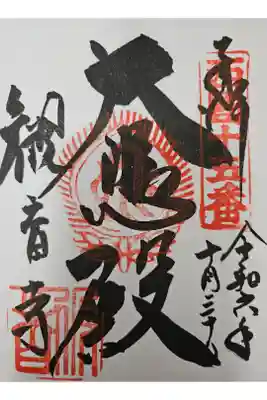 奉拝
西国十五番
大悲殿
観音寺
令和六年
十月三十日